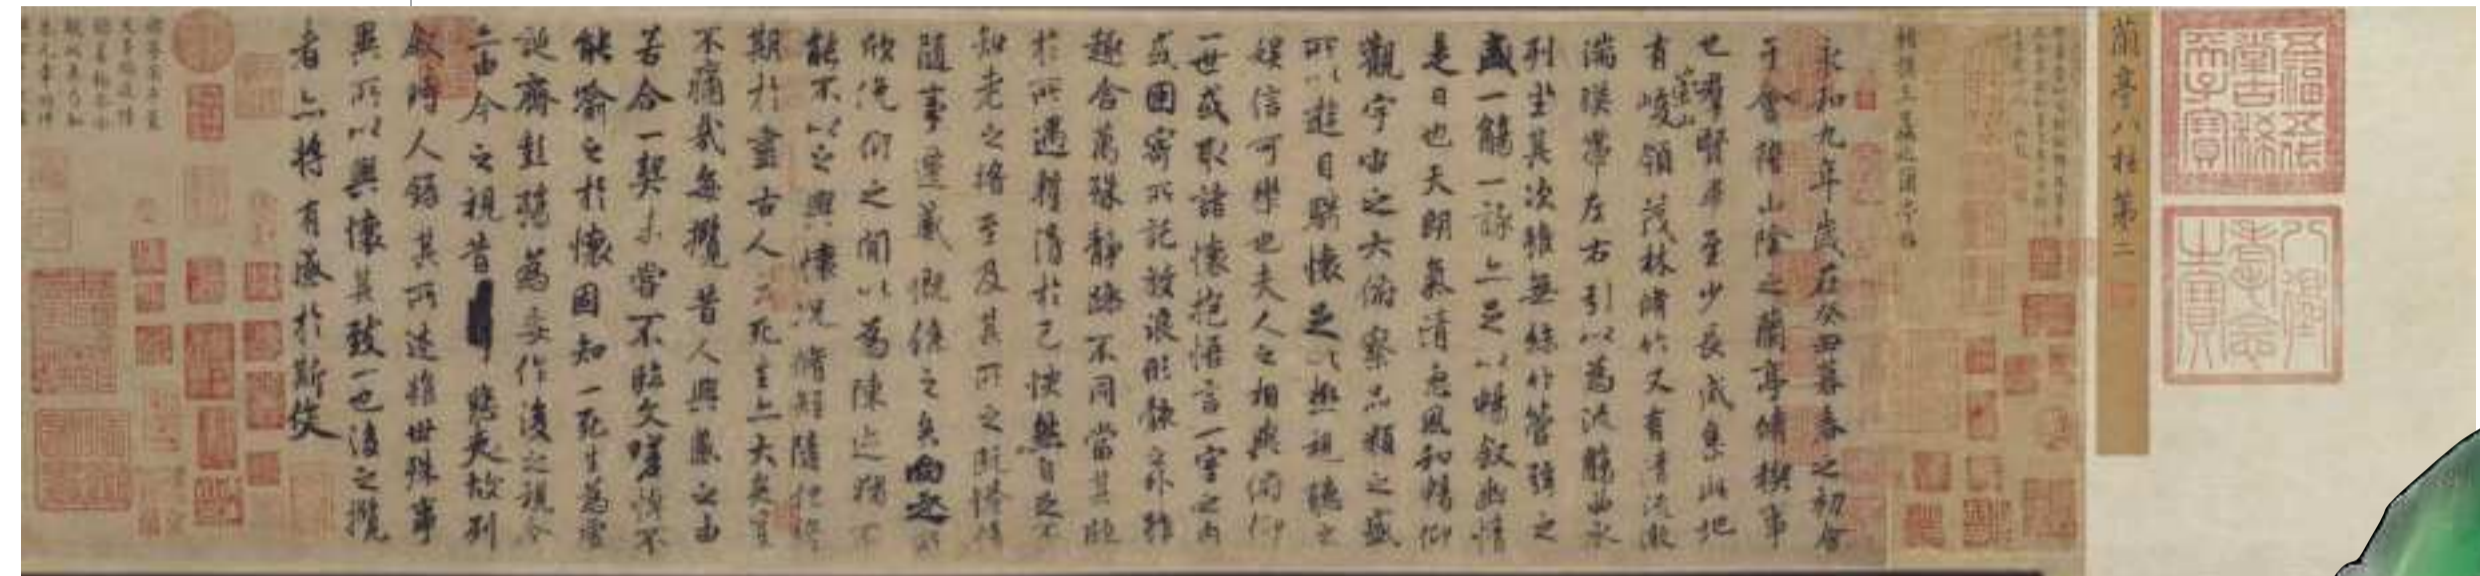 五福五代
堂古稀
天子寶
八徵
耄念
之寶
蘭亭八柱第二
褚模王羲之蘭亭帖
永和九年歲在癸丑暮春之初會
于會稽山陰之蘭亭脩稧事
也羣賢畢至少長咸集此地
有崇山峻領茂林脩竹又有清流激
湍暎帶左右引以為流觴曲水
列坐其次雖無絲竹管弦之
盛一觴一詠亦足以暢敘幽情
是日也天朗氣清惠風和暢仰
觀宇宙之大俯察品類之盛
所以遊目騁懷足以極視聽之
娛信可樂也夫人之相與俯仰
一世或取諸懷抱悟言一室之內
或因寄所託放浪形骸之外雖
趣舍萬殊靜躁不同當其欣
於所遇蹔得於己怏然自足不
知老之將至及其所之既惓情
隨事遷感慨係之矣向之所
欣俛仰之間以為陳迹猶不
能不以之興懷況脩短隨化終
期於盡古人云死生亦大矣豈
不痛哉每攬昔人興感之由
若合一契未嘗不臨文嗟悼不
能喻之於懷固知一死生為虛
誕齊彭殤為妄作後之視今
亦由今之視昔悲夫故列
敘時人錄其所述雖世殊事
異所以興懷其致一也後之攬
者亦將有感於斯文